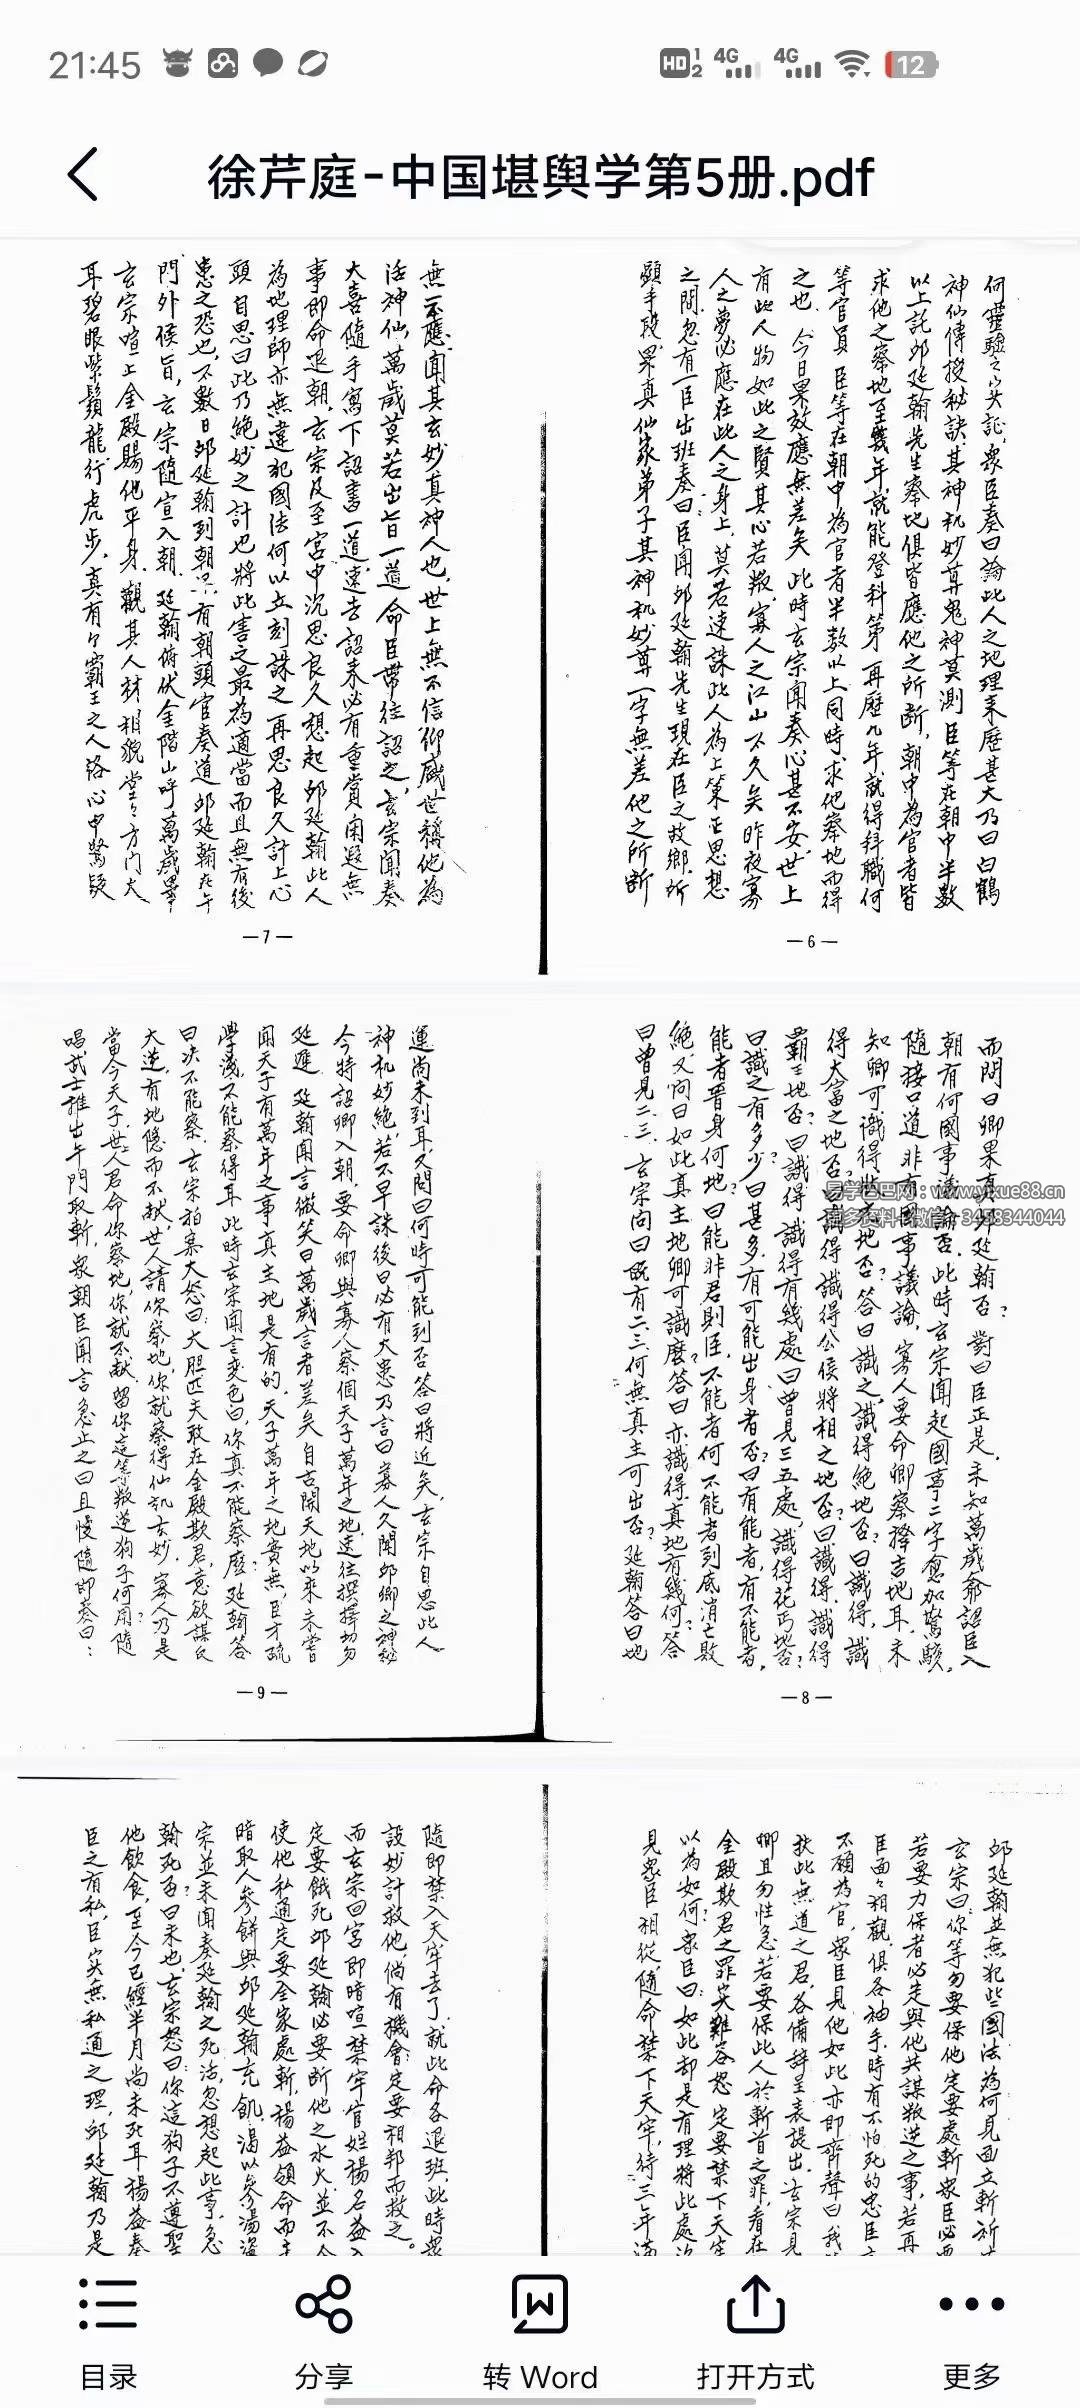 21:45
HD 1 2 4G 4G 12
徐芹庭-中国堪舆学第5册.pdf
何靈驗之实証,眾臣奏曰論此人之地理来歷甚大乃曰白鶴
神仙傳授秘訣其神机妙算鬼神莫測臣等在朝中半数
以上託邱延翰先生察地俱皆應他之所断,朝中為官者皆
求他之察地至幾年就能登科第再歷九年就得拜職何
等官員臣等在朝中為官者半数以上同時求他察地而得
之也今日果效應無差矣此時玄宗聞奏心甚不安世上
有此人物如此之賢其心若叛,寡人之江山不久矣昨夜寡
人之夢必應在此人之身上,莫若速誅此人為上策正思想
之間忽有一臣出班奏曰臣聞邱延翰先生現在臣之故鄉所
顯手段果真仙家弟子其神机妙算一字無差他之所断
—6—
無不應聞其玄妙真神人也,世上無不信仰感世稱他為
活神仙,萬歲莫若出旨一道命臣帶往詔之,玄宗聞奏
大喜隨手寫下詔書一道,速去詔来必有重賞閑遐無
事即命退朝,玄宗及至宮中沉思良久想起邱延翰此人
為地理師亦無違犯國法何以立刻誅之再思良久計上心
頭自思曰此乃絕妙之計也將此害之最為適當而且無有後
患之恐也,不數日邱延翰到朝有朝頭官奏道邱延翰在午
門外候旨,玄宗隨宣入朝,延翰俯伏金階山呼萬歲畢
玄宗喧上金殿賜他平身,觀其人材相貌堂々方門大
耳碧眼紫鬚龍行虎步,真有々霸王之人洛心中驚疑
—7—
而問曰卿果真邱延翰否?對曰臣正是,未知萬歲爺詔臣入
朝有何國事議論否,此時玄宗聞起國事二字愈加驚駭,
隨接口道非有國事議論,寡人要命卿察擇吉地耳,未
知卿可識得些吉地否?答曰識之,識得絕地否?曰識得,識
得大富之地否?曰識得識得公侯將相之地否?曰識得,識得
霸王地否?曰識得識得有幾處曰曾見三五處,識得花丐地否?
曰識之有多少?曰甚多有可能出身者否?曰有能者,有不能者,
能者晉身何地?曰能非君則臣,不能者何不能者到底消亡敗
絕又问曰如此真主地卿可識麼?答曰亦識得真地有幾何?答
曰曾見二三,玄宗问曰既有二三何無真主可出否?延翰答曰地
易学巴巴网:www.yixue88.cn
更多资料+微信:3458344044
—8—
運尚未到耳,又問曰何時可能到否答曰將近矣,玄宗自思此人
神机妙絕,若不早誅後日必有大患乃言曰寡人久聞邱卿之神秘
今特詔卿入朝,要命卿與寡人察個天子萬年之地速往擇擇切勿
延遲延翰聞言微笑曰萬歲言者差矣自古開天地以來未嘗
聞天子有萬年之事真主地是有的,天子萬年之地實無,臣才疏
學淺不能察得耳此時玄宗聞言变色曰,你真不能察麼?延翰答
曰决不能察,玄宗拍案大怒曰大胆匹夫敢在金殿欺君,意欲謀反
大逆,有地隱而不献,世人請你察地,你就察得仙机玄妙,寡人乃是
當今天子,世人君命你察地,你就不献,留你這等叛逆狗子何用?隨
唱武士推出午門取斬,眾朝臣聞言急止之曰且慢隨即奏曰:
—9—
邱延翰並無犯些國法為何見面立斬祈
玄宗曰:你等勿要保他定要處斬眾臣必要
若要力保者必定與他共謀叛逆之事,若再
臣面々相觀俱各袖手,時有不怕死的忠臣
不願為官,眾臣見他如此亦即齊聲曰我
扶此無道之君,各備辭呈表提出,玄宗見
卿且勿性急,若要保此人於斬首之罪,看在
金殿欺君之罪实難容恕定要禁下天牢
以為如何?眾臣曰:如此却是有理將此處
見眾臣相從隨命禁下天牢,待三年滿
隨即禁入天牢去了,就此命各退班,此時眾
設妙計救他,倘有機會定要相邦而救之。
而玄宗回宮即暗喧禁牢官姓楊名益入
定要餓死邱延翰必要断他之水火並不
使他私通定要全家處斬,楊益領命而去
暗取人參餅與邱延翰充飢,渴以參湯
宗並未聞奏延翰之死活,忽想起此事,急
翰死否?曰未也,玄宗怒曰:你這狗子不遵聖
他飲食,至今已經半月尚未死耳楊益奏
臣之有私,臣实無私通之理,邱延翰乃是
目录
分享
转 Word
打开方式
更多